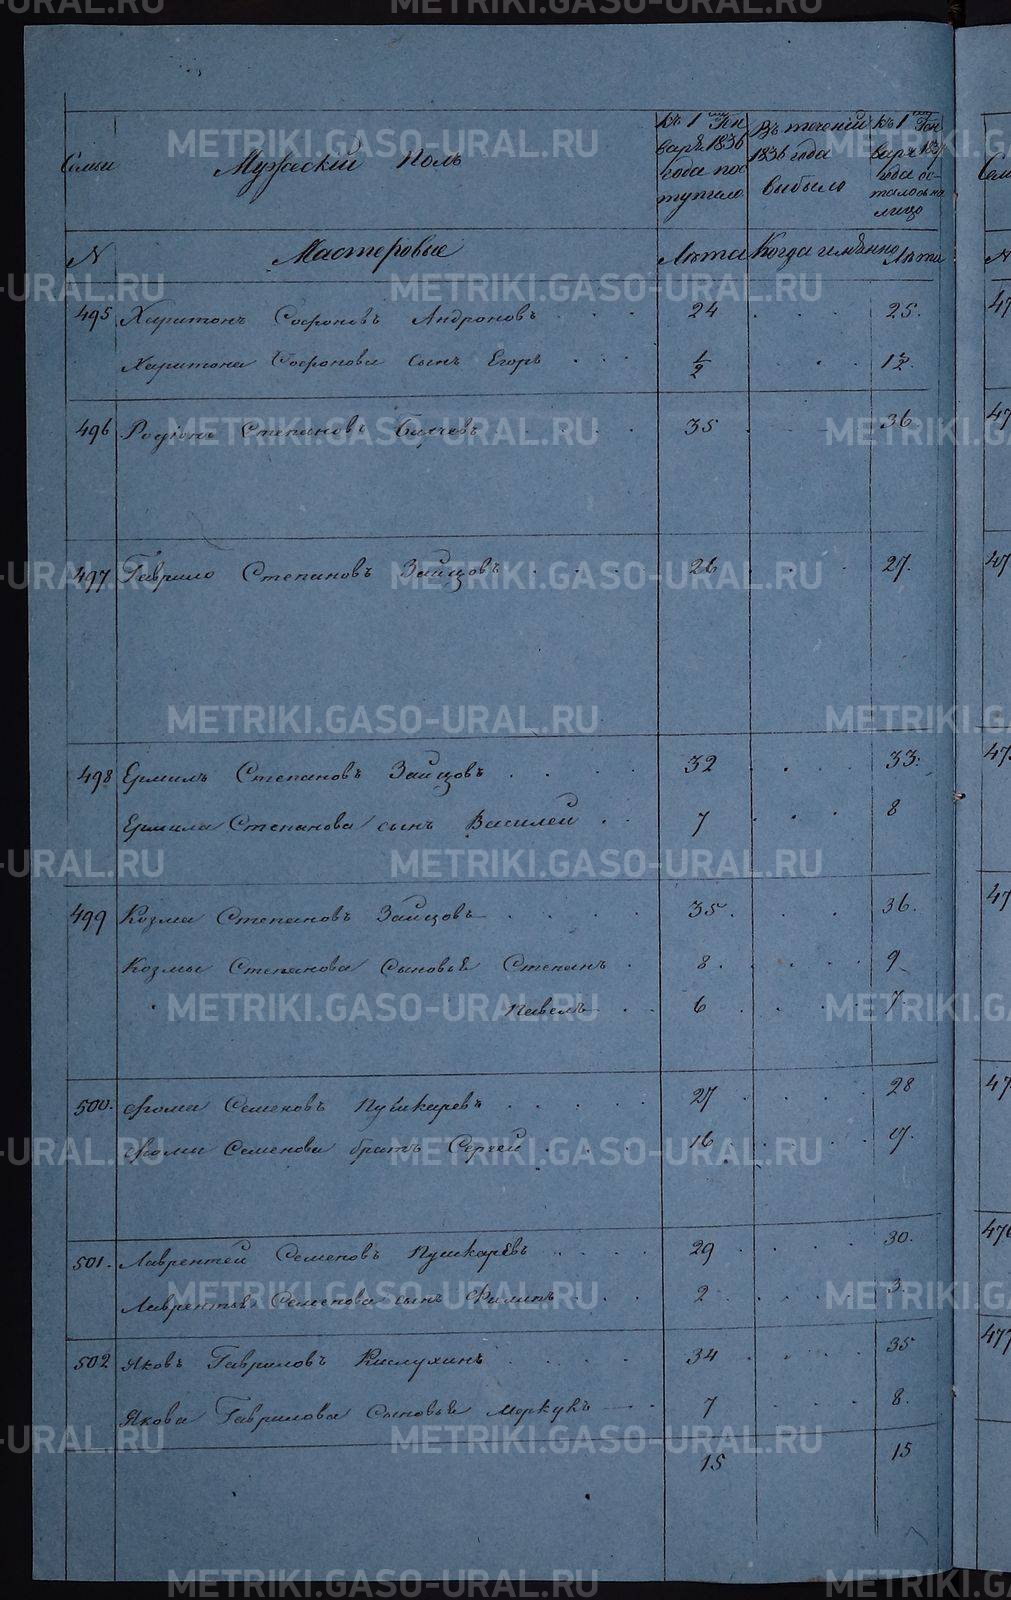 Семьи
Мужеский полъ
Къ 1 Ген
варя 1836
года пос
тупило
Въ теченіи
1836 года
выбыло
Къ 1 Ген
варя 1837
года ос-
талось на
лицо
N
Мастеровые
Лѣта
Когда именно
Лѣта
495 Харитонъ Софроновъ Андроновъ 24 25.
Харитона Софронова сынъ Егоръ 1/2 1 1/2.
496 Родіонъ Степановъ 35 36
497 Гаврило Степановъ Зайцовъ 26 27.
498 Ермилъ Степановъ Зайцовъ 32 33.
Ермила Степанова сынъ Василей 7 8
499 Козма Степановъ Зайцовъ 35. 36.
Козмы Степанова сыновья Степанъ 8. 9
Павелъ 6 7
500. Фома Семеновъ Пушкаревъ 27 28
Фомы Семенова братъ Сергей 16 17.
501. Лаврентей Семеновъ Пушкаревъ 29 30.
Лаврентья Семенова сынъ Филипъ 2 3.
502 Яковъ Гавриловъ Кислухинъ 34 35
Якова Гаврилова сыновья Меркулъ 7 8.
15 15
METRIKI.GASO-URAL.RU